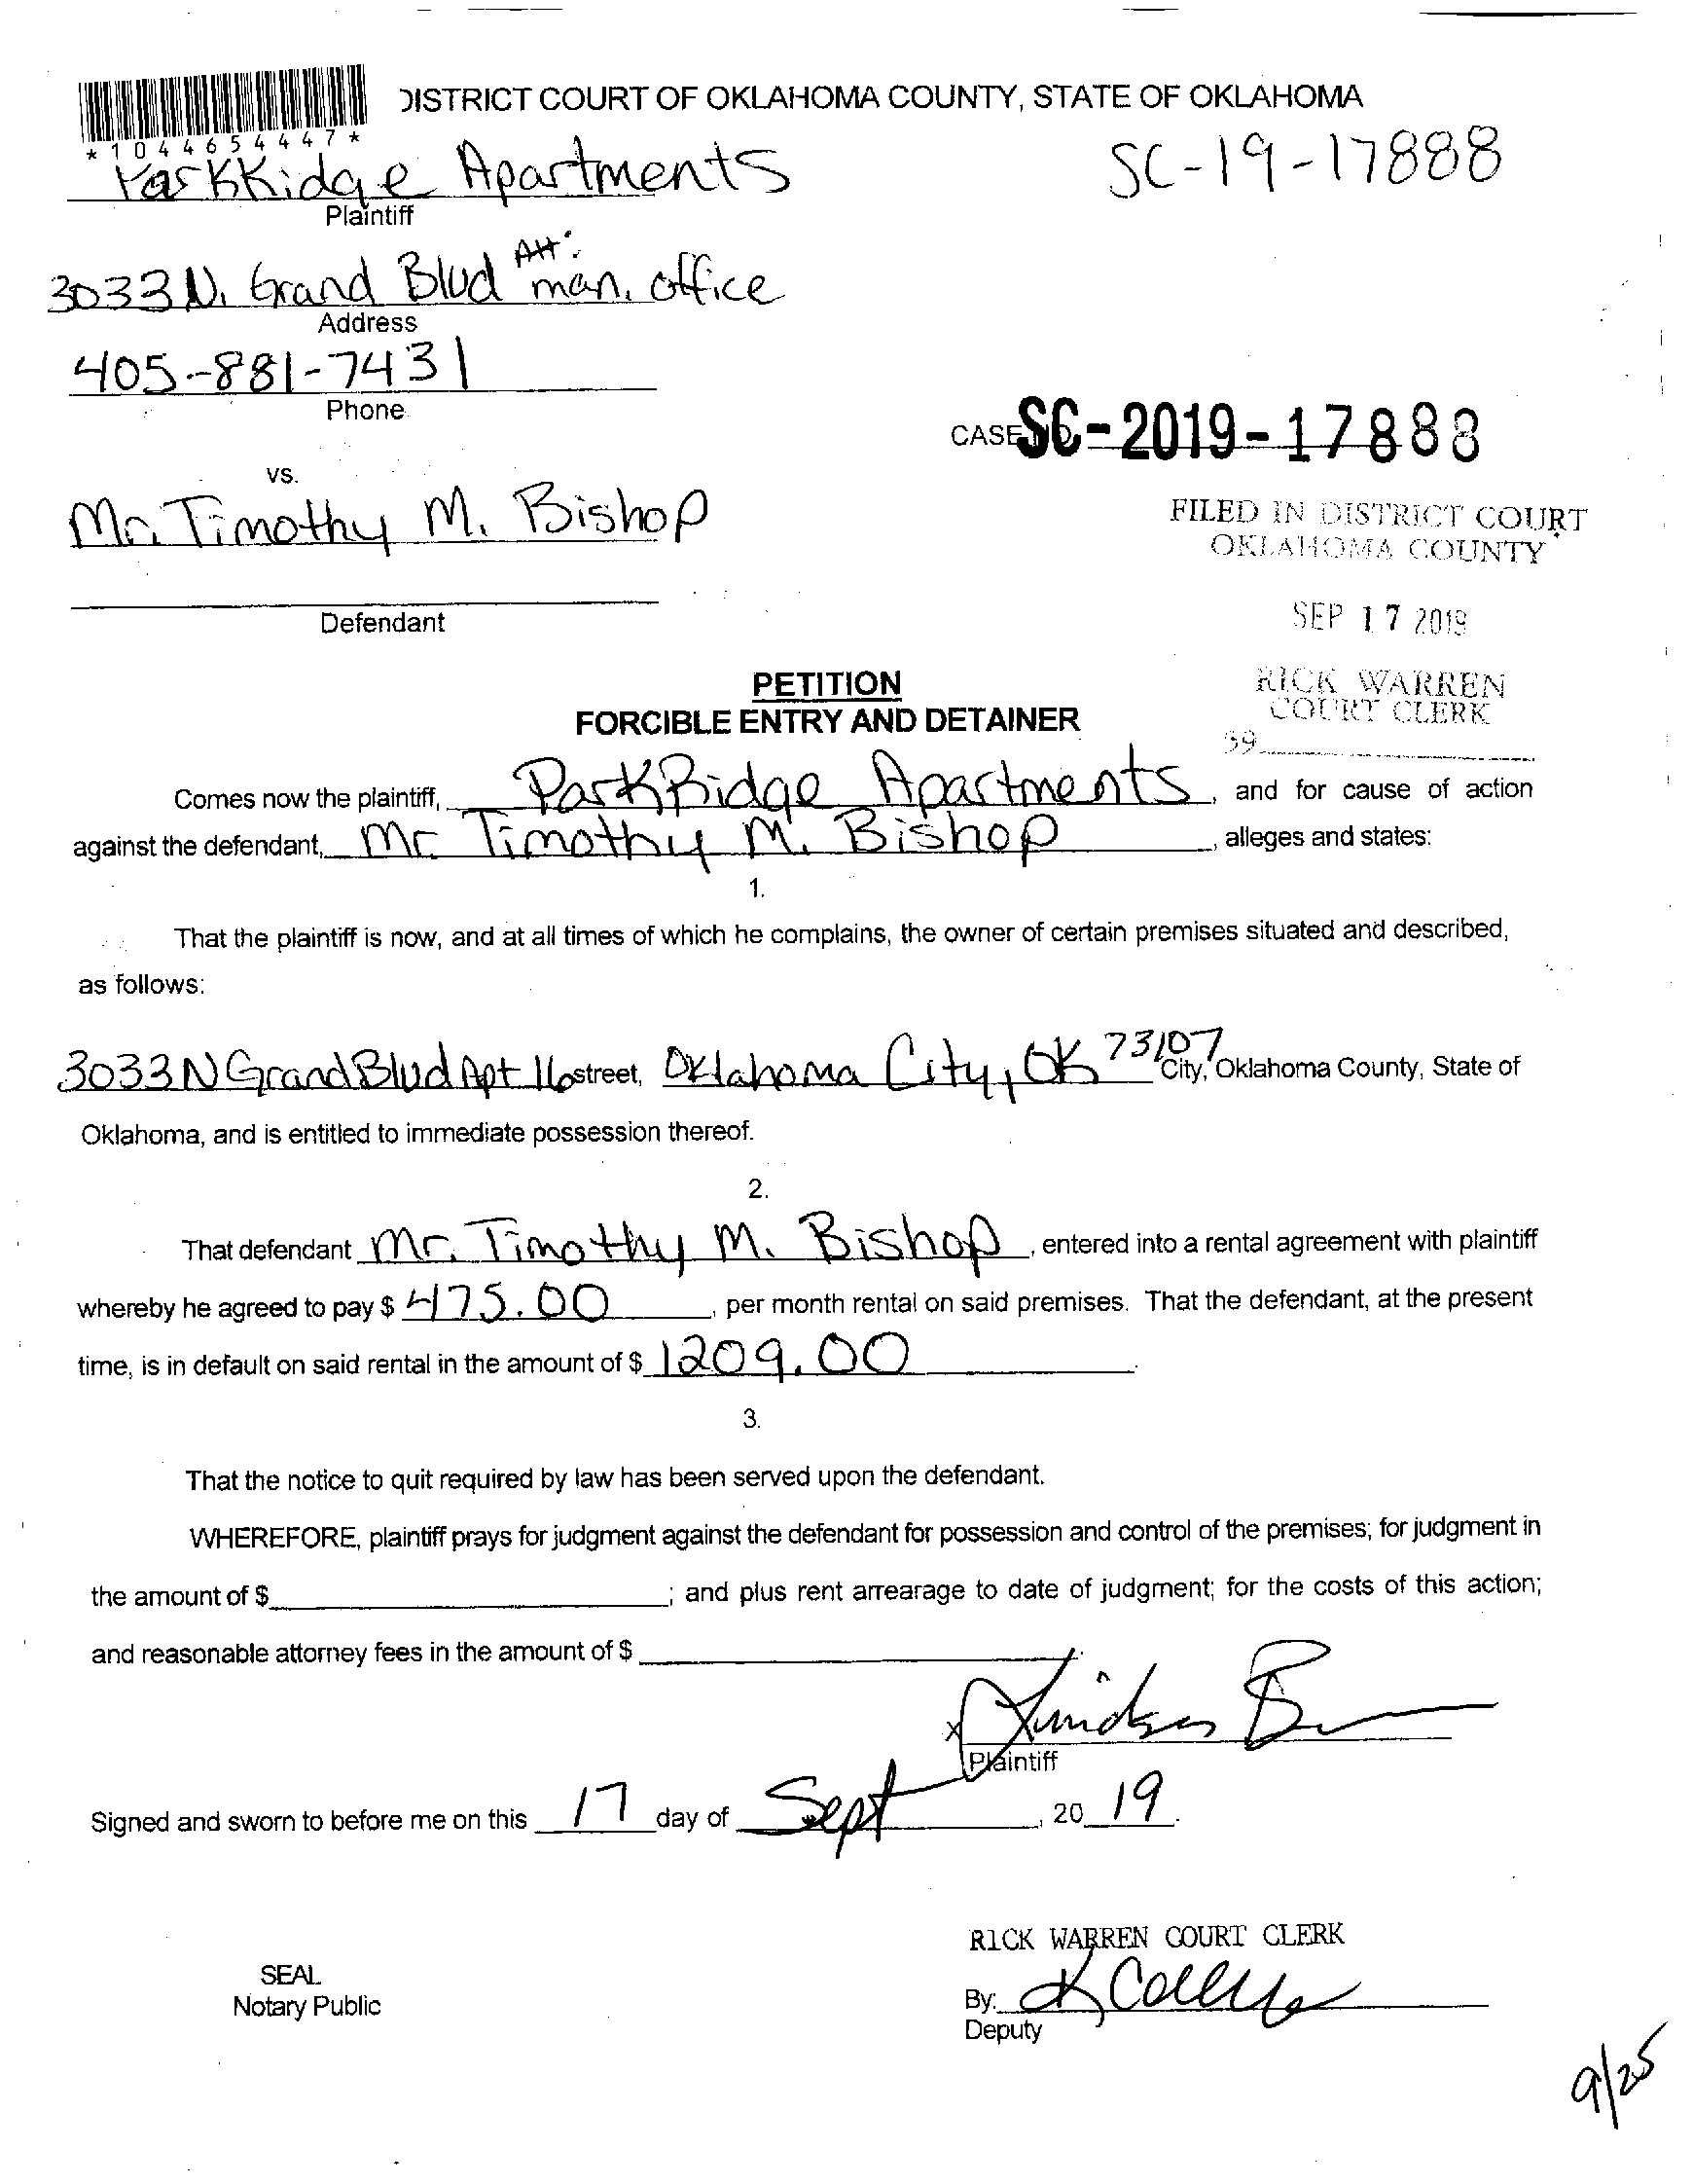 DISTRICT COURT OF OKLAHOMA COUNTY, STATE OF OKLAHOMA
*1044654447*
ParkRidge Apartments
SC-19-17888
Plaintiff
3033 N. Grand Blvd Att: man. office
Address
405-881-7431
Phone
CASE SC-2019-17888
vs.
Mr. Timothy M. Bishop
FILED IN DISTRICT COURT
OKLAHOMA COUNTY
Defendant
SEP 17 2019
PETITION
RICK WARREN
COURT CLERK
FORCIBLE ENTRY AND DETAINER
39
Comes now the plaintiff, ParkRidge Apartments, and for cause of action
against the defendant, Mr Timothy M. Bishop, alleges and states:
1.
That the plaintiff is now, and at all times of which he complains, the owner of certain premises situated and described,
as follows:
3033 N Grand Blvd Apt 16 street, Oklahoma City, OK 73107 City, Oklahoma County, State of
Oklahoma, and is entitled to immediate possession thereof.
2.
That defendant Mr. Timothy M. Bishop, entered into a rental agreement with plaintiff
whereby he agreed to pay $ 475.00, per month rental on said premises. That the defendant, at the present
time, is in default on said rental in the amount of $ 1209.00.
3.
That the notice to quit required by law has been served upon the defendant.
WHEREFORE, plaintiff prays for judgment against the defendant for possession and control of the premises; for judgment in
the amount of $; and plus rent arrearage to date of judgment; for the costs of this action;
and reasonable attorney fees in the amount of $
x
Plaintiff
Signed and sworn to before me on this 17 day of Sept, 20 19.
RICK WARREN COURT CLERK
SEAL
Notary Public
By:
Deputy
9/25